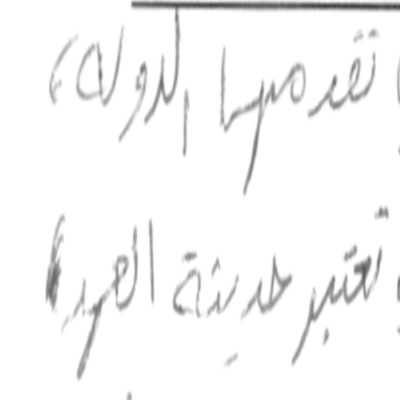 تقدمها الدولة،
تعتبر مدينة العمرة